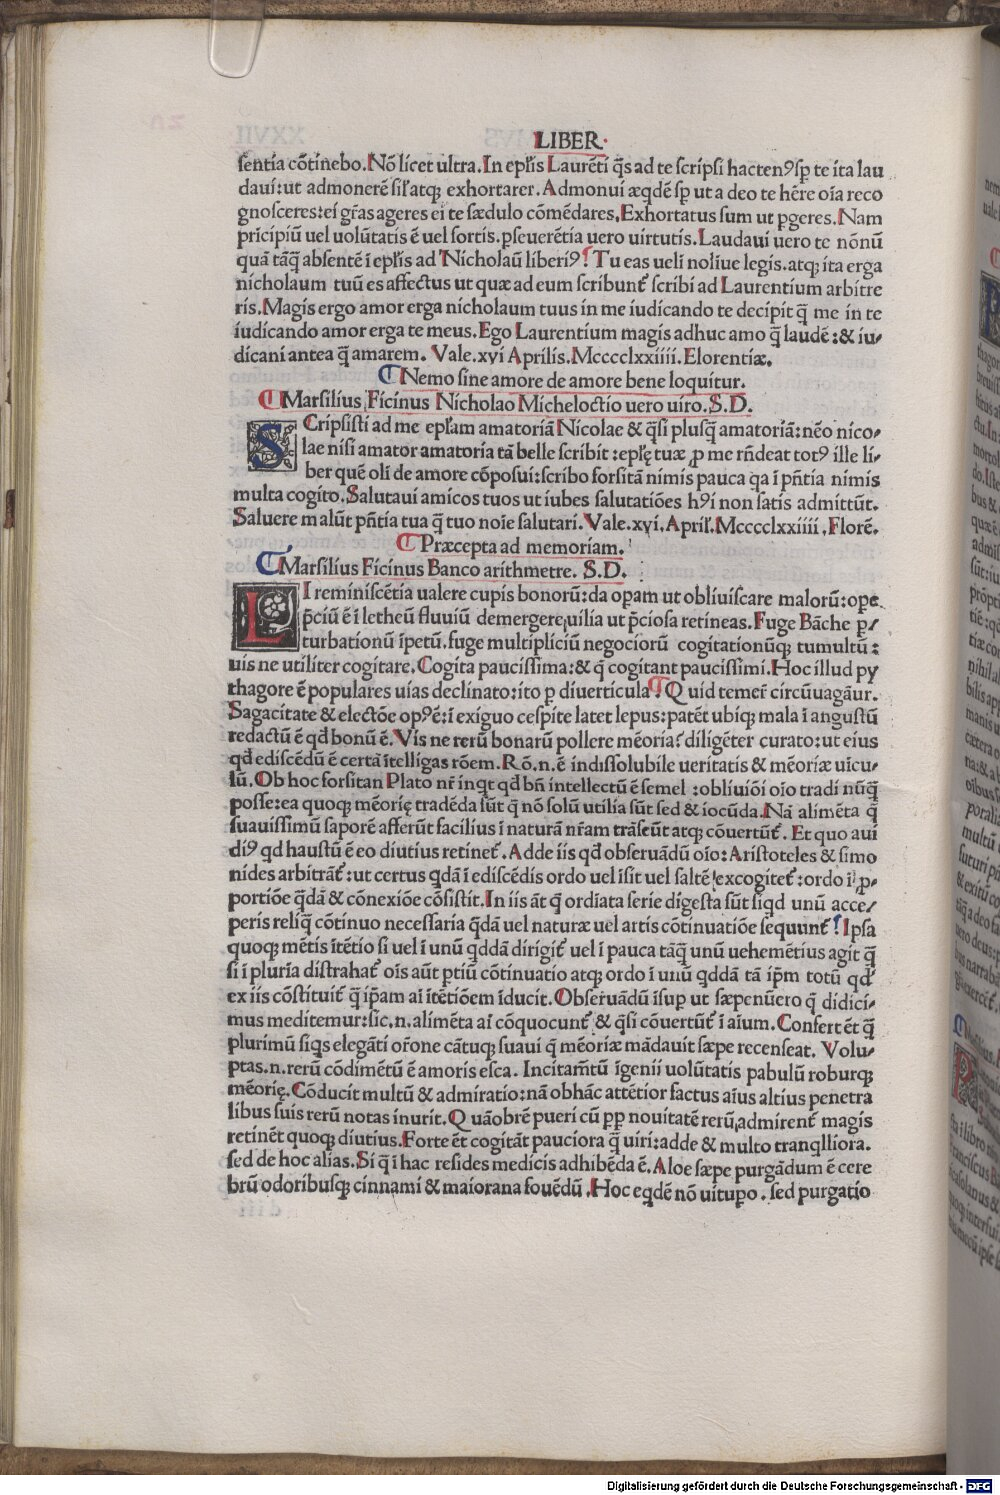 LIBER·
sentia cõtinebo. Nõ licet ultra. In epl̃is Laurẽti q̃s ad te scripsi hacten⁹ sp̱ te ita lau
daui: ut admonerẽ sil̃ atqꝫ exhortarer. Admonui æqdẽ sp̱ ut a deo te hẽre oĩa reco
gnosceres: ei gr̃as ageres ei te sædulo cõmẽdares. Exhortatus sum ut ꝑgeres. Nam
pricipiũ uel uolũtatis ẽ uel sortis. pseuerẽtia uero uirtutis. Laudaui uero te nõnũ
quã tãq̃ absentẽ ĩ epl̃is ad Nicholaũ liberi⁹? Tu eas ueli noliue legis. atqꝫ ita erga
nicholaum tuũ es affectus ut quæ ad eum scribunt̃ scribi ad Laurentium arbitre
ris. Magis ergo amor erga nicholaum tuus in me iudicando te decipit q̃ me in te
iudicando amor erga te meus. Ego Laurentium magis adhuc amo q̃ laudẽ: & iu-
dicani antea q̃ amarem. Vale. xvi Aprilis. Mcccclxxiiii. Elorentiæ.
¶ Nemo sine amore de amore bene loquitur.
¶ Marsilius Ficinus Nicholao Micheloctio uero uiro. S. D.
SCripsisti ad me epl̃am amatoriã Nicolae & q̃si plusq̃ amatoriã: nẽo nico-
lae nisi amator amatoria tã belle scribit: epl̃ę tuæ ꝓ me rñdeat tot⁹ ille li-
ber quẽ oli de amore cõposui: scribo forsitã nimis pauca qa ĩ pñtia nimis
multa cogito. Salutaui amicos tuos ut iubes salutatiões h⁹i non satis admittũt.
Saluere malũt pñtia tua q̃ tuo noĩe salutari. Vale. xyi. April̃. Mcccclxxiiii. Florẽ.
¶ Præcepta ad memoriam.
¶ Marsilius Ficinus Banco arithmetre. S. D.
LI reminiscẽtia ualere cupis bonorũ: da opam ut obliuiscare malorũ: ope
p̃ciũ ẽ ĩ letheũ fluuiũ demergere uilia ut p̃ciosa retineas. Fuge Bãche ꝑ-
turbationũ ĩpetũ. fuge multipliciũ negociorũ cogitationũqꝫ tumultũ:
uis ne utiliter cogitare. Cogita paucissima: & q̃ cogitant paucissimi. Hoc illud py
thagore ẽ populares uias declinato: ito p diuerticula? Quid temer̃ circũuagãur.
Sagacitate & electõe op⁹ẽ: ĩ exiguo cespite latet lepus: patẽt ubiqꝫ mala ĩ angustũ
redactũ ẽ qđ bonũ ẽ. Vis ne rerũ bonarũ pollere mẽoria? diligẽter curato: ut eius
qđ ediscẽdũ ẽ certã ĩtelligas rõem. Rõ. n. ẽ indissolubile ueritatis & mẽoriæ uĩcu-
lũ. Ob hoc forsitan Plato nr̃ inqt qđ bñ intellectũ ẽ semel: obliuiõi oĩo tradi nũq̃
posse: ea quoqꝫ mẽorię tradẽda sũt q̃ nõ solũ utilia sũt sed & iocũda. Nã alimẽta q̃
suauissimũ saporẽ afferũt facilius ĩ naturã nr̃am trãseũt atqꝫ cõuertũt̃. Et quo aui
di⁹ qđ haustũ ẽ eo diutius retinet̃. Adde iis qđ obseruãdũ oĩo: Aristoteles & simo
nides arbitrãt̃: ut certus qdã ĩ ediscẽdis ordo uel ĩsit uel saltẽ excogitet̃: ordo ĩ ꝓ-
portiõe q̃dã & cõnexiõe cõsistit. In iis ãt q̃ ordiata serie digesta sũt siqđ unũ acce-
peris reliq̃ cõtinuo necessaria q̃dã uel naturæ uel artis cõtinuatiõe sequunt̃! Ipsa
quoqꝫ mẽtis ĩtẽtio si uel ĩ unũ qddã dirigit̃ uel ĩ pauca tãq̃ unũ uehemẽtius agit q̃
si ĩ pluria distrahat̃ oĩs aũt ptiũ cõtinuatio atqꝫ ordo ĩ unũ qddã tã ĩp̃m totũ qđ
ex iis cõstituit̃ q̃ ĩp̃am aĩ ĩtẽtiõem ĩducit. Obseruãdũ ĩsup ut sæpenũero q̃ didici-
mus meditemur: sic. n. alimẽta aĩ cõquocunt̃ & q̃si cõuertũt̃ ĩ aĩum. Confert ẽt q̃
plurimũ siqs elegãti or̃one cãtuqꝫ suaui q̃ mẽoriæ mãdauit sæpe recenseat. Volu-
ptas. n. rerũ cõdimẽtũ ẽ amoris esca. Incitam̃tũ ĩgenii uolũtatis pabulũ roburqꝫ
mẽorię. Cõducit multũ & admiratio: nã obhãc attẽtior factus aĩus altius penetra
libus suis rerũ notas inurit. Quãobrẽ pueri cũ pp nouitatẽ rerũ admirent̃ magis
retinẽt quoqꝫ diutius. Forte ẽt cogitãt pauciora q̃ uiri: adde & multo tranqlliora.
sed de hoc alias. Si q̃ ĩ hac resides medicis adhibẽda ẽ. Aloe sæpe purgãdum ẽ cere
brũ odoribusqꝫ cinnami & maiorana fouẽdũ. Hoc eqdẽ nõ uitupo. sed purgatio
Digitalisierung gefördert durch die Deutsche Forschungsgemeinschaft - DFG